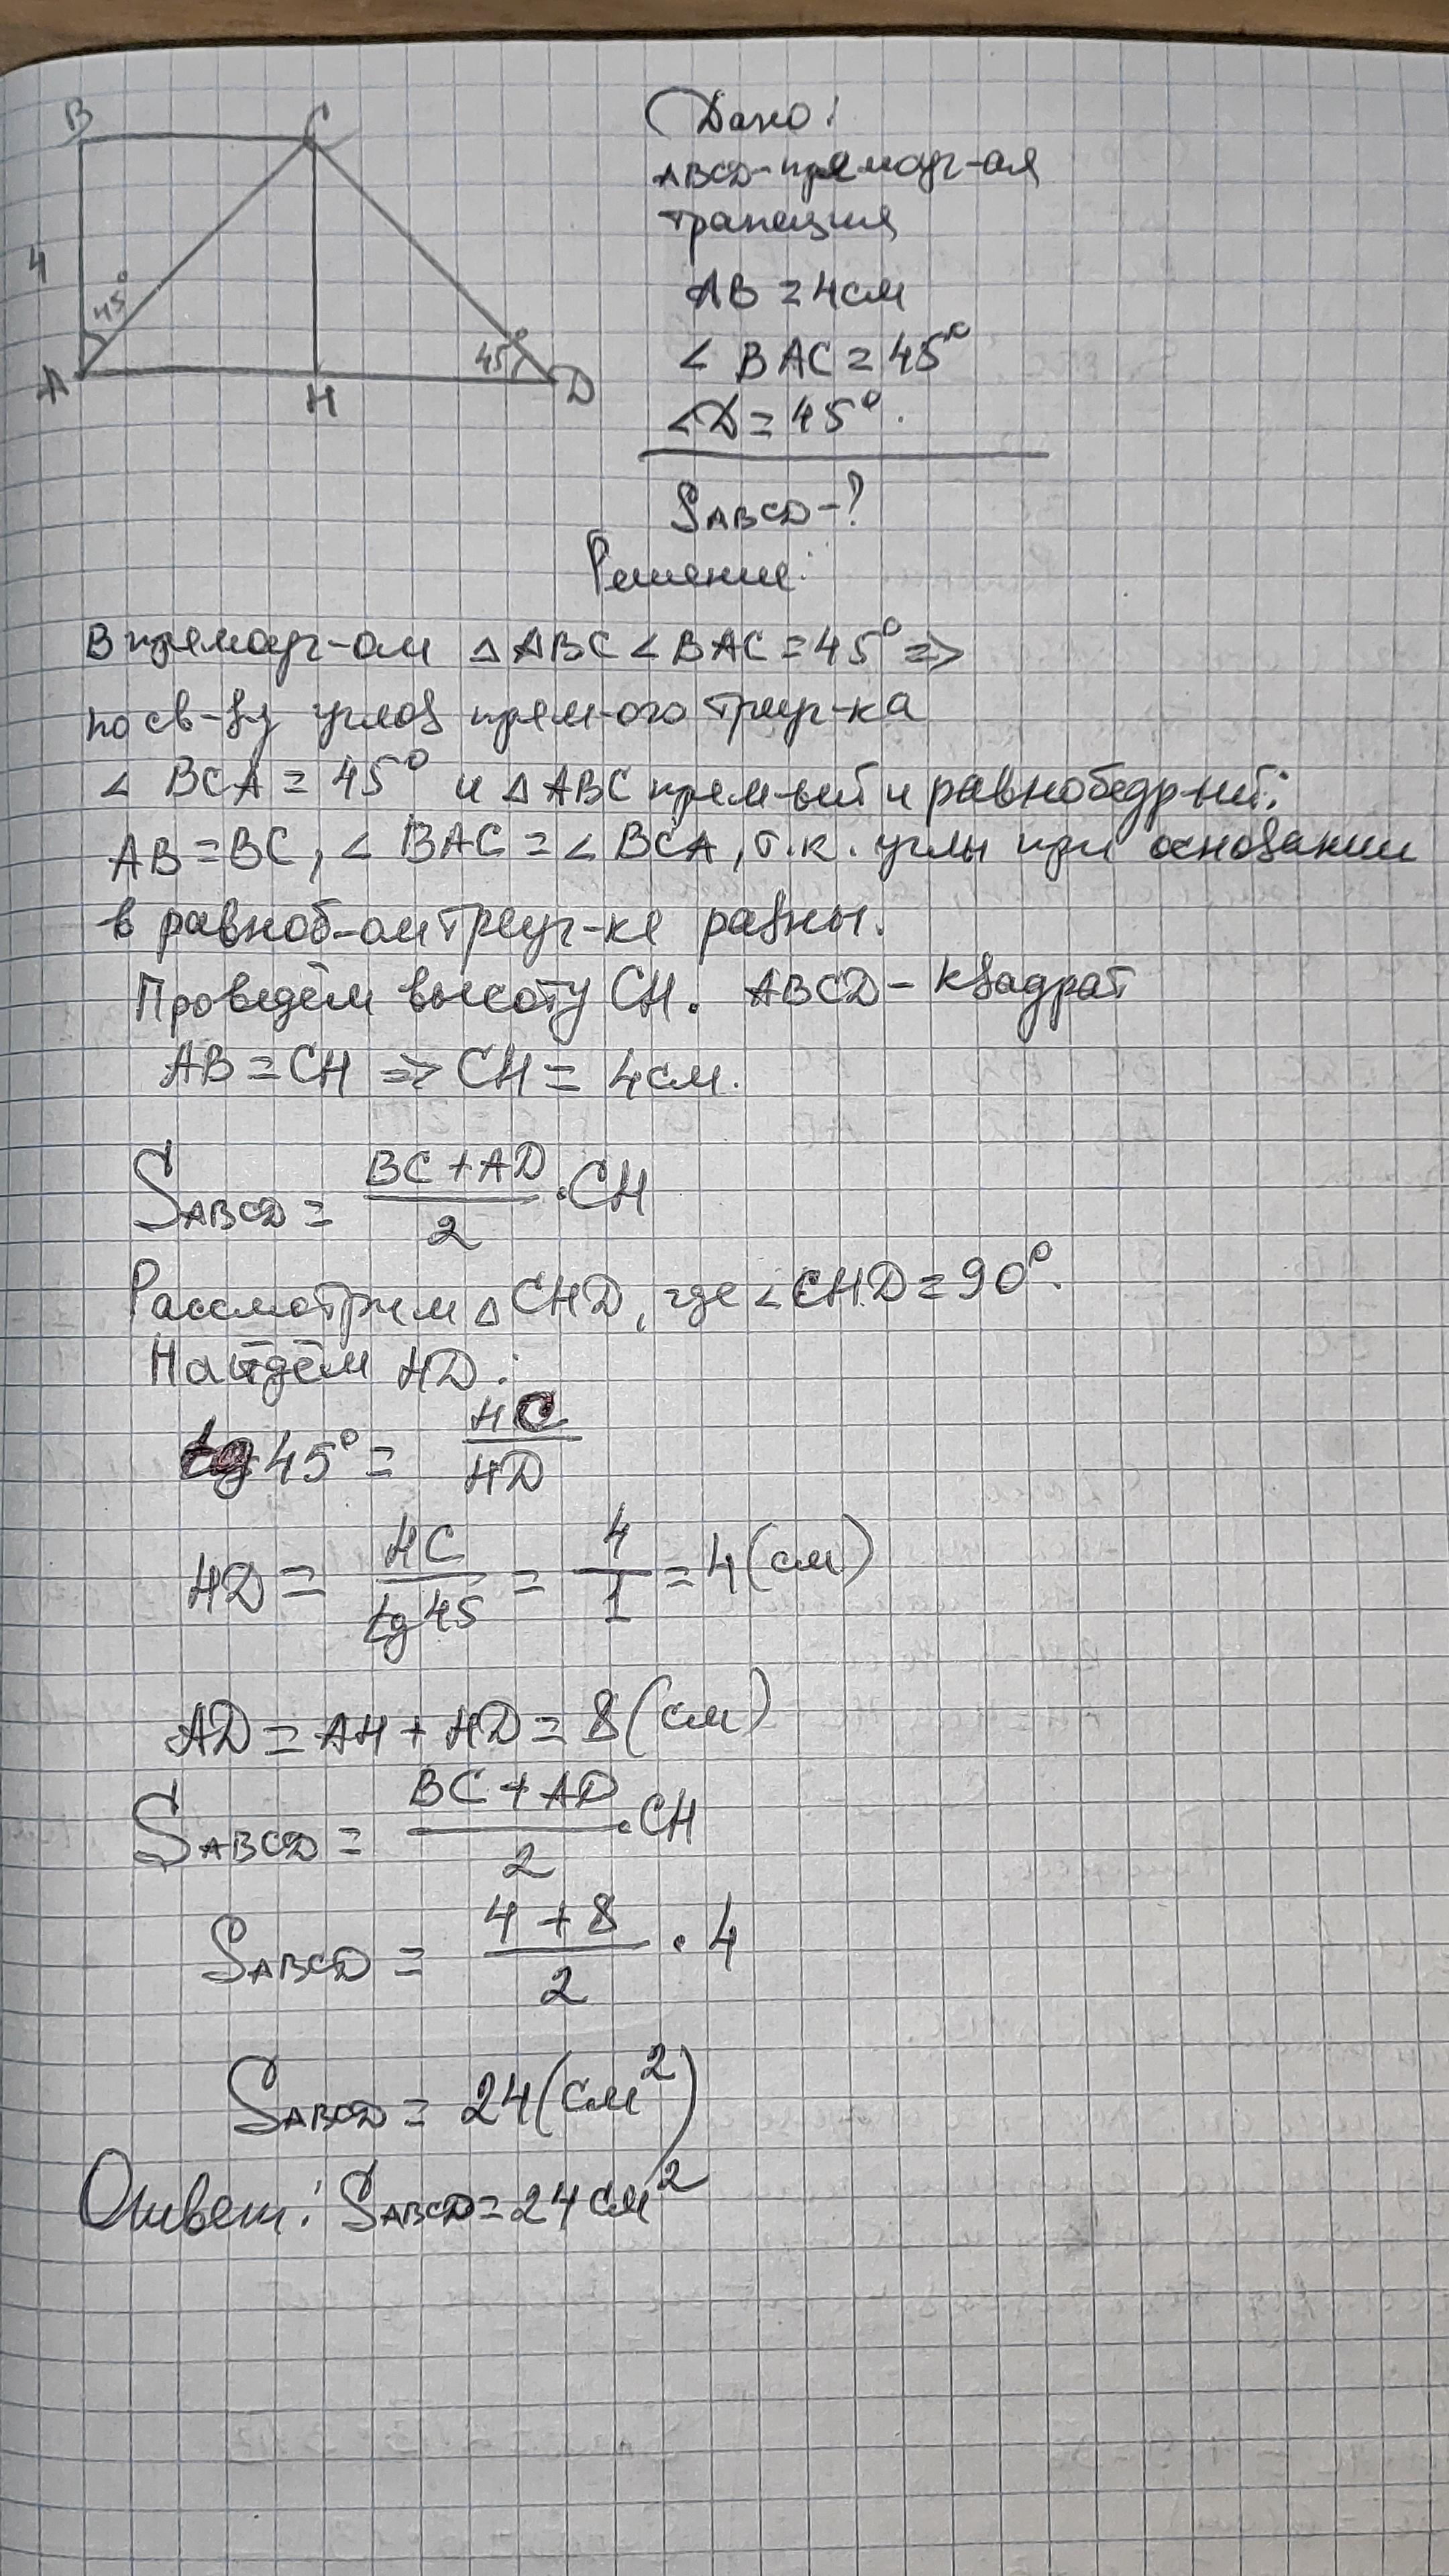 B
C
4
45°
A
H
45°
D
Дано:
ABCD-прямоуг-ая
трапеция
AB = 4см
∠ BAC = 45°
∠D = 45°.
SABCD-?
Решение:
В прямоуг-ом △ABC ∠BAC = 45° =>
по св-ву углов прям-ого треуг-ка
∠ BCA = 45° и △ABC прям-ый и равнобедр-ый:
AB = BC, ∠ BAC = ∠ BCA, т.к. углы при основании
в равноб-ом треуг-ке равны.
Проведём высоту CH. ABCD - квадрат
AB = CH => CH = 4см.
SABCD = BC + AD / 2 · CH
Рассмотрим △CHD, где ∠CHD = 90°.
Найдём HD:
tg 45° = HC / HD
HD = HC / tg 45 = 4 / 1 = 4 (см)
AD = AH + HD = 8 (см)
SABCD = BC + AD / 2 · CH
SABCD = 4 + 8 / 2 · 4
SABCD = 24 (см²)
Ответ: SABCD = 24 см²